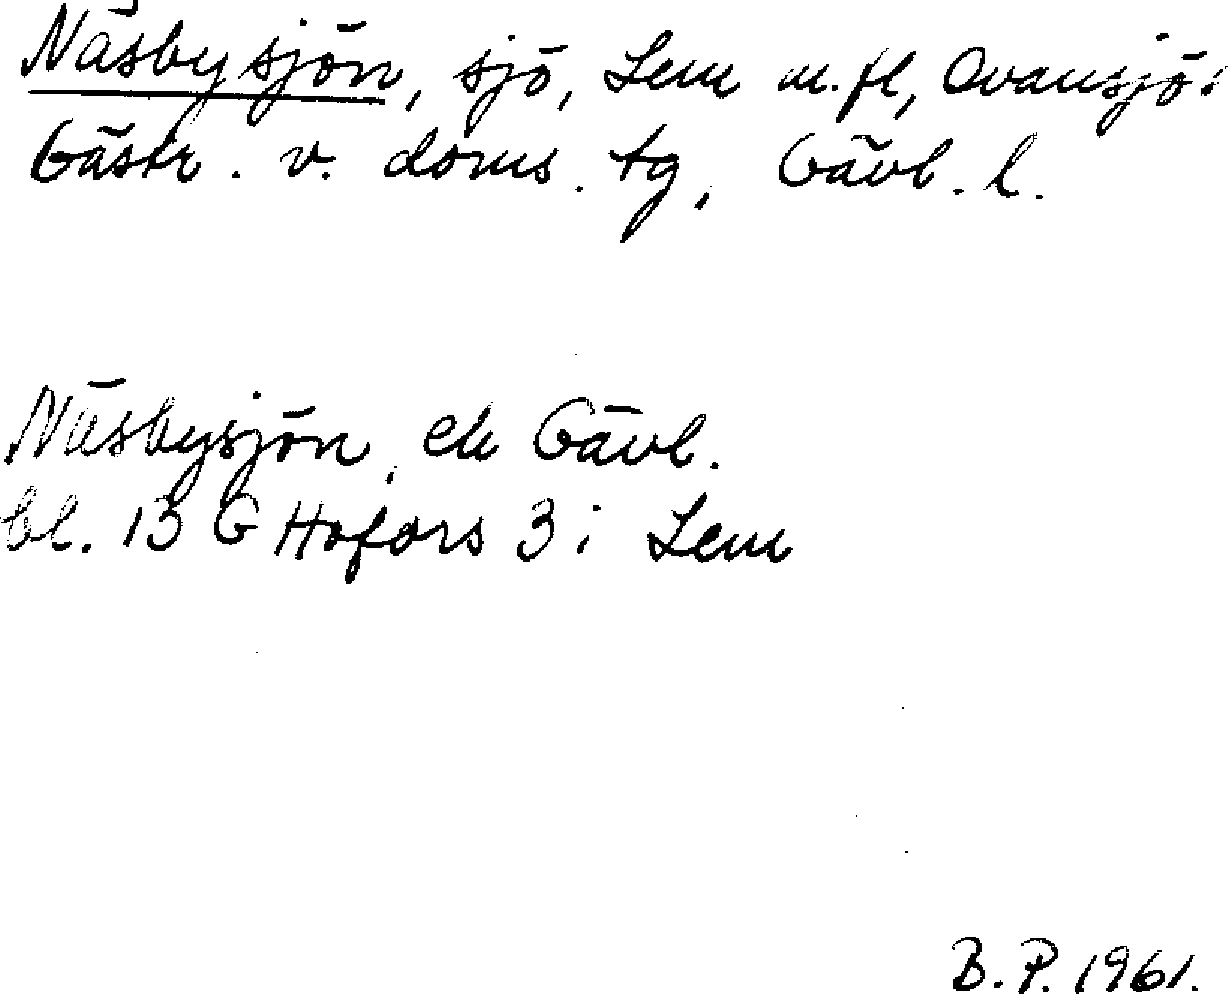 Näsbysjön, sjö, Lem m.fl, Ovansjö.
Gästr. v. doms. tg, Gävl. l.
Näsbysjön, ek Gävl.
bl. 13 G Hofors 3 i Lem
B.P. 1961.